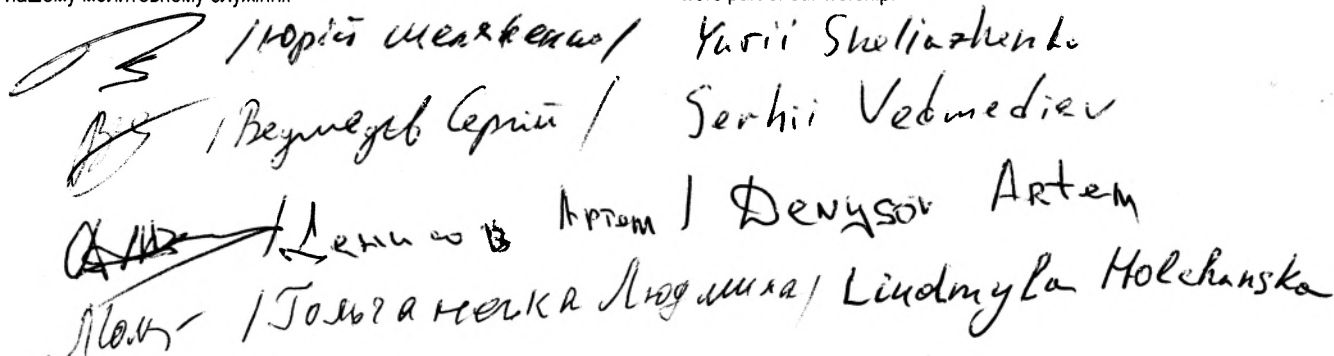 нашому молитовному служінні
/Юрій Шеляженко/ Yurii Sheliazhenko
/Ведмедєв Сергій/ Serhii Vedmediev
/Денисов Артем/ Denysov Artem
/Гольчанська Людмила/ Liudmyla Holchanska